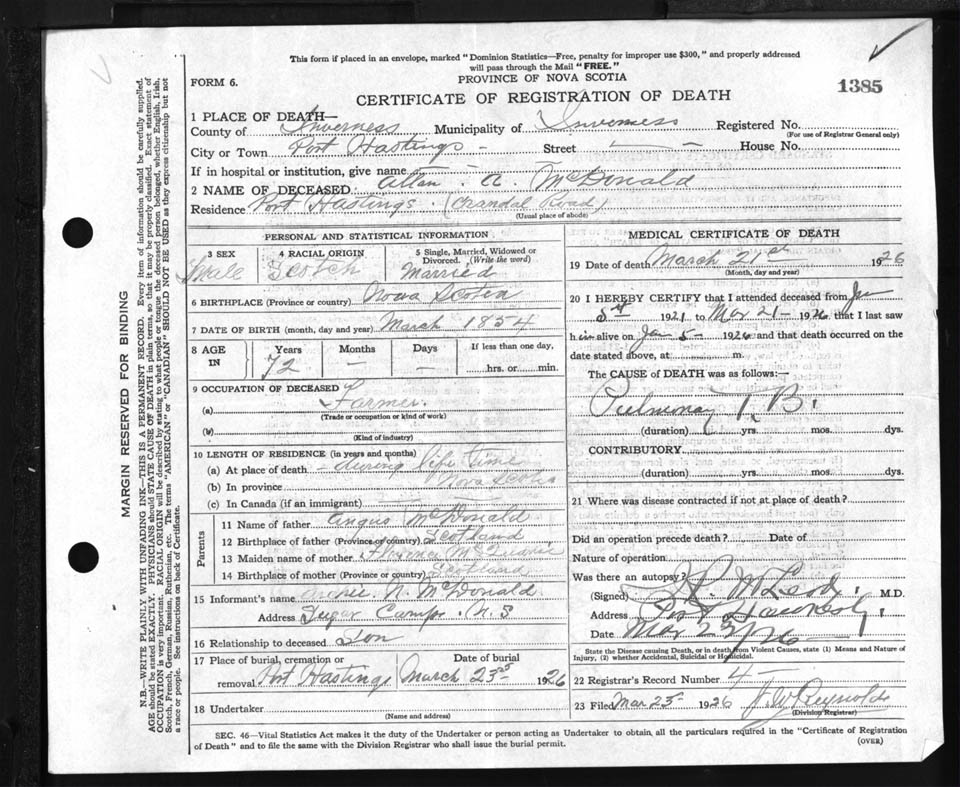 This form if placed in an envelope, marked "Dominion Statistics—Free, penalty for improper use $300," and properly addressed
will pass through the Mail "FREE."
FORM 6.
PROVINCE OF NOVA SCOTIA
1385
CERTIFICATE OF REGISTRATION OF DEATH
1 PLACE OF DEATH—
County of Inverness Municipality of Inverness Registered No.
(For use of Registrar General only)
City or Town Port Hastings - Street — - House No.
If in hospital or institution, give name —
2 NAME OF DECEASED Allan . A . McDonald
Residence Port Hastings . (Crandal Road)
(Usual place of abode)
PERSONAL AND STATISTICAL INFORMATION
3 SEX 4 RACIAL ORIGIN 5 Single, Married, Widowed or
Divorced. (Write the word)
Male Scotch Married
6 BIRTHPLACE (Province or country) Nova Scotia
7 DATE OF BIRTH (month, day and year) March 1854
8 AGE IN Years Months Days If less than one day,
72 — — hrs. or min.
9 OCCUPATION OF DECEASED
(a) Farmer.
(Trade or occupation or kind of work)
(b)
(Kind of industry)
10 LENGTH OF RESIDENCE (in years and months)
(a) At place of death - during life time
(b) In province Nova Scotia
(c) In Canada (if an immigrant)
Parents
11 Name of father Angus McDonald
12 Birthplace of father (Province or country) Scotland
13 Maiden name of mother
14 Birthplace of mother (Province or country) Scotland
15 Informant's name N. McDonald
Address Sugar Camp . N. S
16 Relationship to deceased Son
17 Place of burial, cremation or Date of burial
removal Port Hastings March 23rd 1926
18 Undertaker
(Name and address)
MEDICAL CERTIFICATE OF DEATH
19 Date of death March 21st 1926
(Month, day and year)
20 I HEREBY CERTIFY that I attended deceased from Jan
1921 to Mar 21 - 1926 that I last saw
him alive on Jan 5 - 1926 and that death occurred on the
date stated above, at m.
The CAUSE OF DEATH was as follows:—
Pulmonary T. B.
(duration) yrs. mos. dys.
CONTRIBUTORY
(duration) yrs. mos. dys.
21 Where was disease contracted if not at place of death?
Did an operation precede death? Date of
Nature of operation
Was there an autopsy?
(Signed) McLeod, M.D.
Address Port Hawkesbury
Date Mar 23/26
State the Disease causing Death, or in death from Violent Causes, state (1) Means and Nature of
Injury, (2) whether Accidental, Suicidal or Homicidal.
22 Registrar's Record Number 4 —
23 Filed Mar 25 - 1926 J. W. Reynolds
(Division Registrar)
SEC. 46—Vital Statistics Act makes it the duty of the Undertaker or person acting as Undertaker to obtain, all the particulars required in the "Certificate of Registration
of Death" and to file the same with the Division Registrar who shall issue the burial permit. (OVER)
MARGIN RESERVED FOR BINDING
N.B.—WRITE PLAINLY WITH UNFADING INK—THIS IS A PERMANENT RECORD. Every item of information should be carefully supplied.
AGE should be stated EXACTLY. PHYSICIANS should STATE CAUSE OF DEATH in plain terms, so that it may be properly classified. Exact statement of
OCCUPATION is very important. RACIAL ORIGIN will be described by stating to what people or tongue the deceased person belonged, whether English, Irish,
Scotch, French, German, Russian, Ruthenian, etc. The terms "AMERICAN" or "CANADIAN" SHOULD NOT BE USED as they express citizenship but not
a race or people. See instructions on back of Certificate.